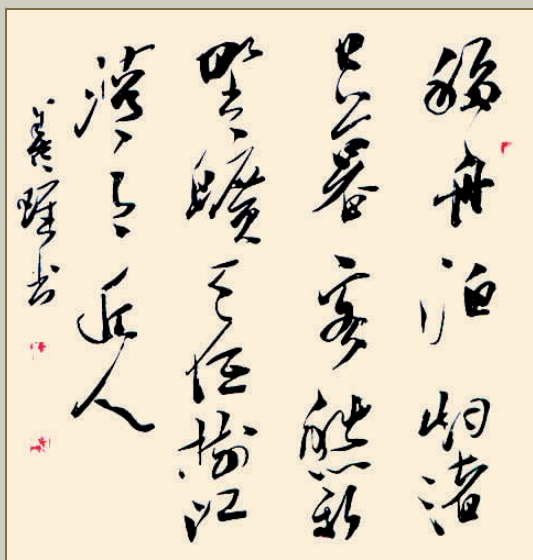 移舟泊烟渚
日暮客愁新
野曠天低樹江
清月近人
书